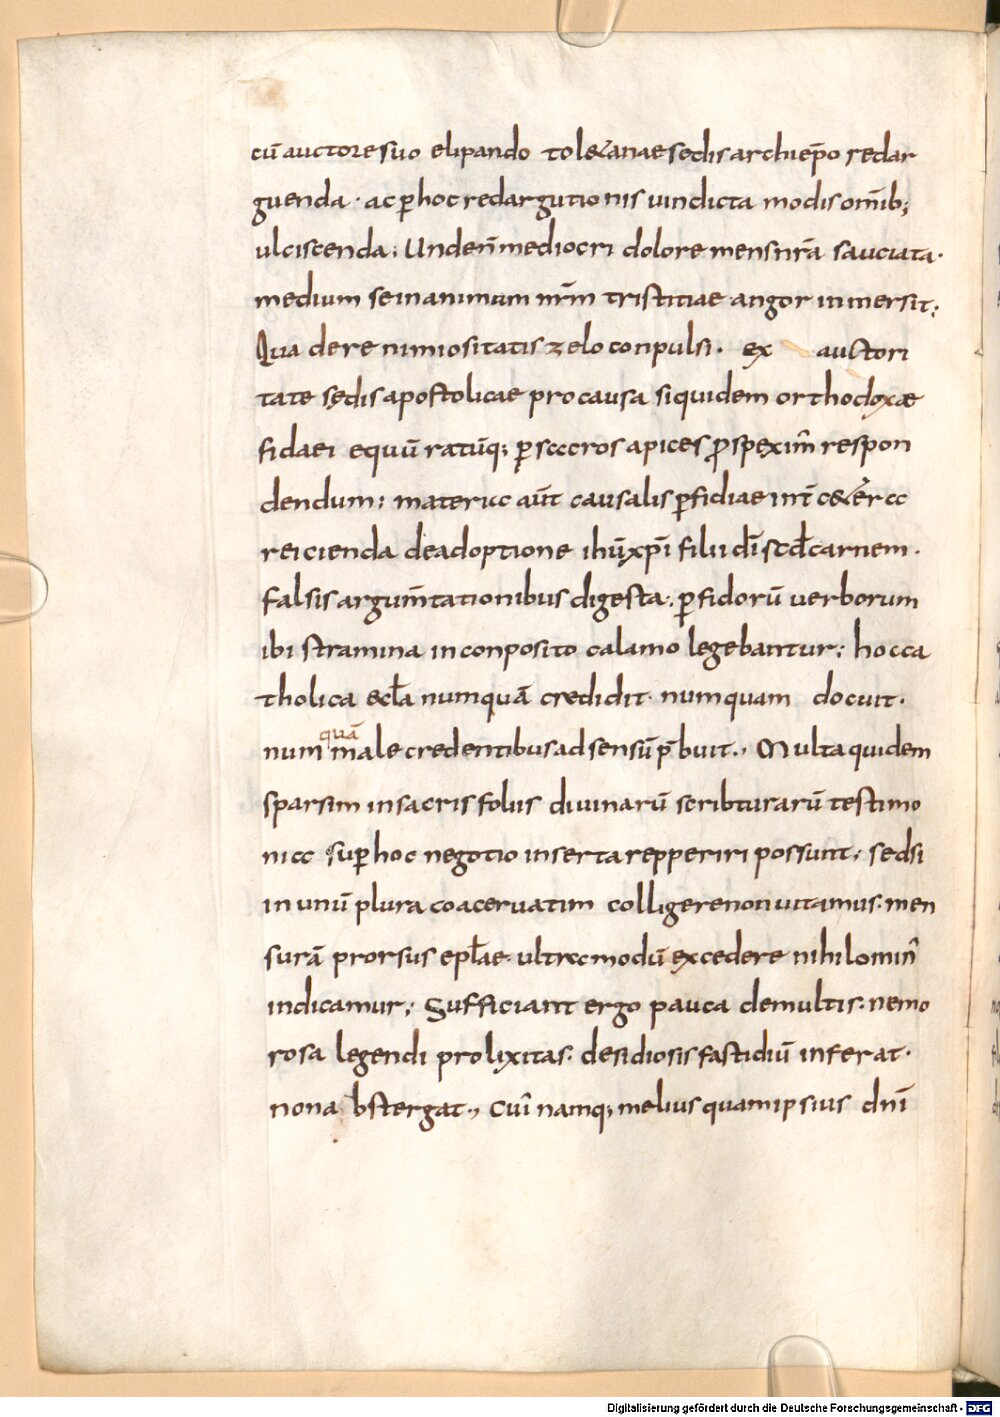 cū auctore suo elipando tol&anae sedis archiep̄o redar
guenda · ac ꝑ hoc redargutionis uindicta modis om̄ib;
ulciscenda; Unde n̄ mediocri dolore mens nr̄a sauciata·
medium se in animum nr̄m tristitiae angor inmersit;
Qua de re nimiositatis zelo conpulsi· ex auctori
tate sedis apostolicae pro causa siquidem orthodoxæ
fidaei equū ratūq; ꝑ sacros apices ꝓspexim̄ respon
dendum; materia aūt causalis ꝑfidiae int̄ c&ēra
reicienda de adoptione ihū xp̄i filii dī scd̄ carnem·
falsis argum̄tationibus digesta; ꝑfidorū uerborum
ibi stramina inconposito calamo legebantur; hoc ca
tholica eccl̄a numquā credidit· numquam docuit·
num quā male credentibus adsensū p̄buit., Multa quidem
sparsim in sacris foliis diuinarū scribturarū testimo
nia suꝑ hoc negotio inserta repperiri possunt; sed si
in unū plura coaceruatim colligere non uitamus· men
surā prorsus epl̄ae· ultra modū excedere nihilomin̄
indicamur; Sufficiant ergo pauca de multis· ne mo
rosa legendi prolixitas· desidiosis fastidiū inferat·
non abstergat., Cui namq; melius quam ipsius dn̄i
Digitalisierung gefördert durch die Deutsche Forschungsgemeinschaft - DFG